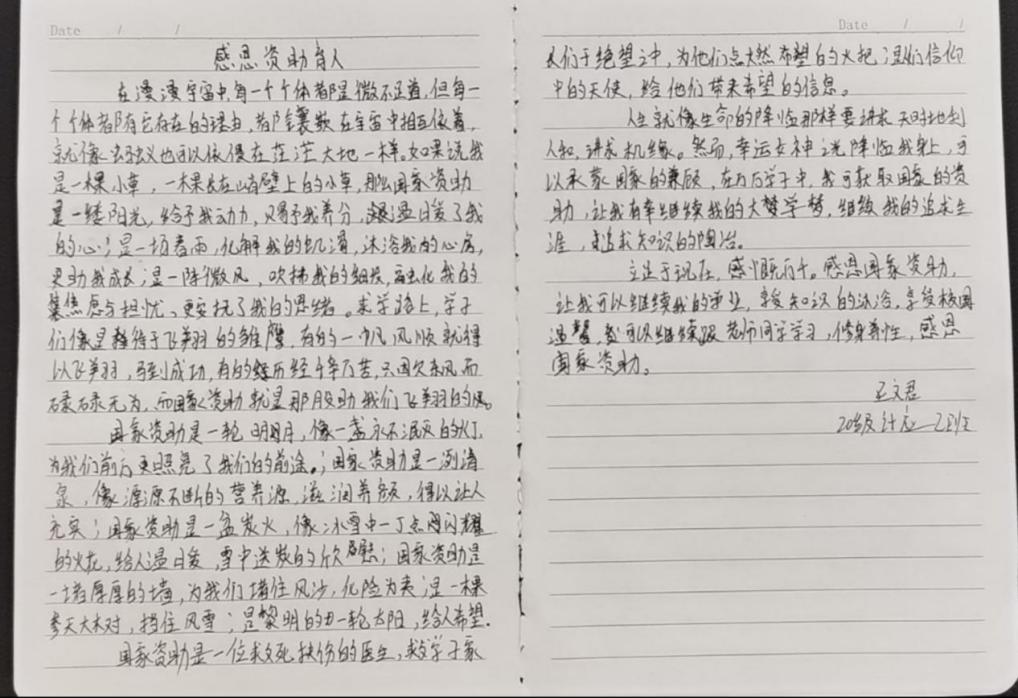 Date / /
感恩资助育人
在漫漫宇宙中,每一个个体都是微不足道,但每一
个个体都有它存在的理由,都镶嵌在宇宙中相互依着,
就像蚂蚁也可以依偎在茫茫大地一样。如果说我
是一棵小草,一棵长在山崖壁上的小草,那么国家资助
是一缕阳光,给予我动力,又赐予我养分,温暖了我
的心;是一场春雨,化解我的饥渴,沐浴我的心房,
更助我成长;是一阵微风,吹拂我的细枝,融化我的
焦虑与担忧,更安抚了我的思绪。求学路上,学子
们像是等待于飞翔的雏鹰,有的一帆风顺就得
以飞翔,马到成功,有的经历经千辛万苦,只因欠东风而
碌碌无为,而国家资助就是那股助我们飞翔的风。
国家资助是一轮明月,像一盏永不泯灭的灯,
为我们前方更照亮了我们的前途。;国家资助是一冽清
泉,像源源不断的营养源,滋润养颜,得以让人
充实;国家资助是一盆炭火,像冰雪中一丁点闪耀
的火花,给人温暖,雪中送炭的欣慰;国家资助是
一堵厚厚的墙,为我们堵住风沙,化险为夷;是一棵
参天大树,挡住风雪;是黎明的一轮太阳,给人希望.
国家资助是一位救死扶伤的医生,救学子家
Date / /
人们于绝望之中,为他们点燃希望的火把;是们信仰
中的天使,给他们带来希望的信息。
人生就像生命的降临那样要讲求天时地利
人和,讲求机缘。然而,幸运女神说降临我身上,可
以承蒙国家的兼顾,在万万学子中,我可获取国家的资
助,让我有幸继续我的大学梦,继续我的追求生
涯,追求知识的陶冶。
立足于现在,感慨万千。感恩国家资助,
让我可以继续我的学业,享受知识的沐浴,享受校园
温馨,我可以继续跟老师同学学习,修身养性,感恩
国家资助。
王文君
20级计应乙班